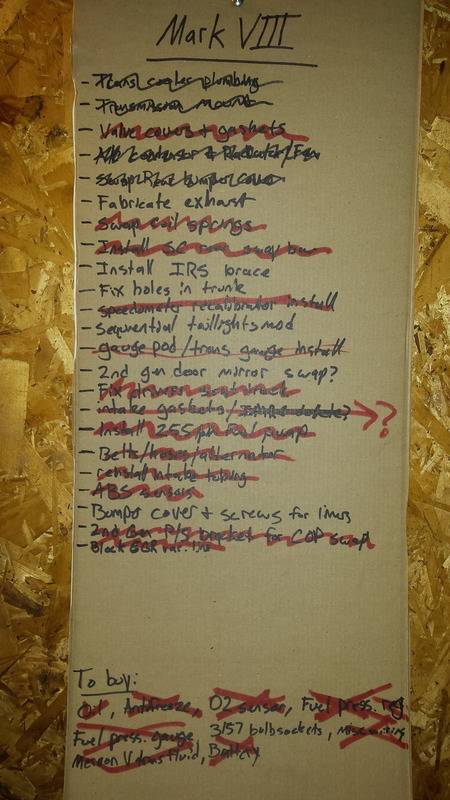 Mark VIII
- Trans cooler plumbing
- Transmission mount
- Valve covers + gaskets
- A/C condensor + Radiator/Fan
- Swap Rear bumper cover
- Fabricate exhaust
- Swap coil springs
- Install SC rear sway bar
- Install IRS brace
- Fix holes in trunk
- speedometer recalibrator install
- Sequential taillights mod
- gauge pod/trans gauge install
- 2nd gen door mirror swap?
- Fix drivers seat track
- intake gaskets/ delete? → ?
- Install 255lph fuel pump
- Belts/hoses/alternator
- reinstall intake tubing
- ABS sensors
- Bumper cover + screws for liners
- 2nd Gen P/S bracket for COP swap
- Block EGR vac. line
To buy:
Oil, Antifreeze, O2 sensor, Fuel press. reg
Fuel press. gauge 3157 bulb sockets, misc wiring
Mercon V trans fluid, Battery